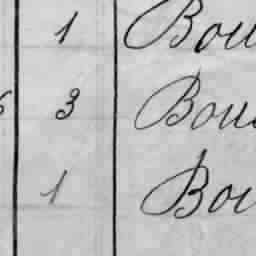 1 Bou
6 3 Bou
1 Bou